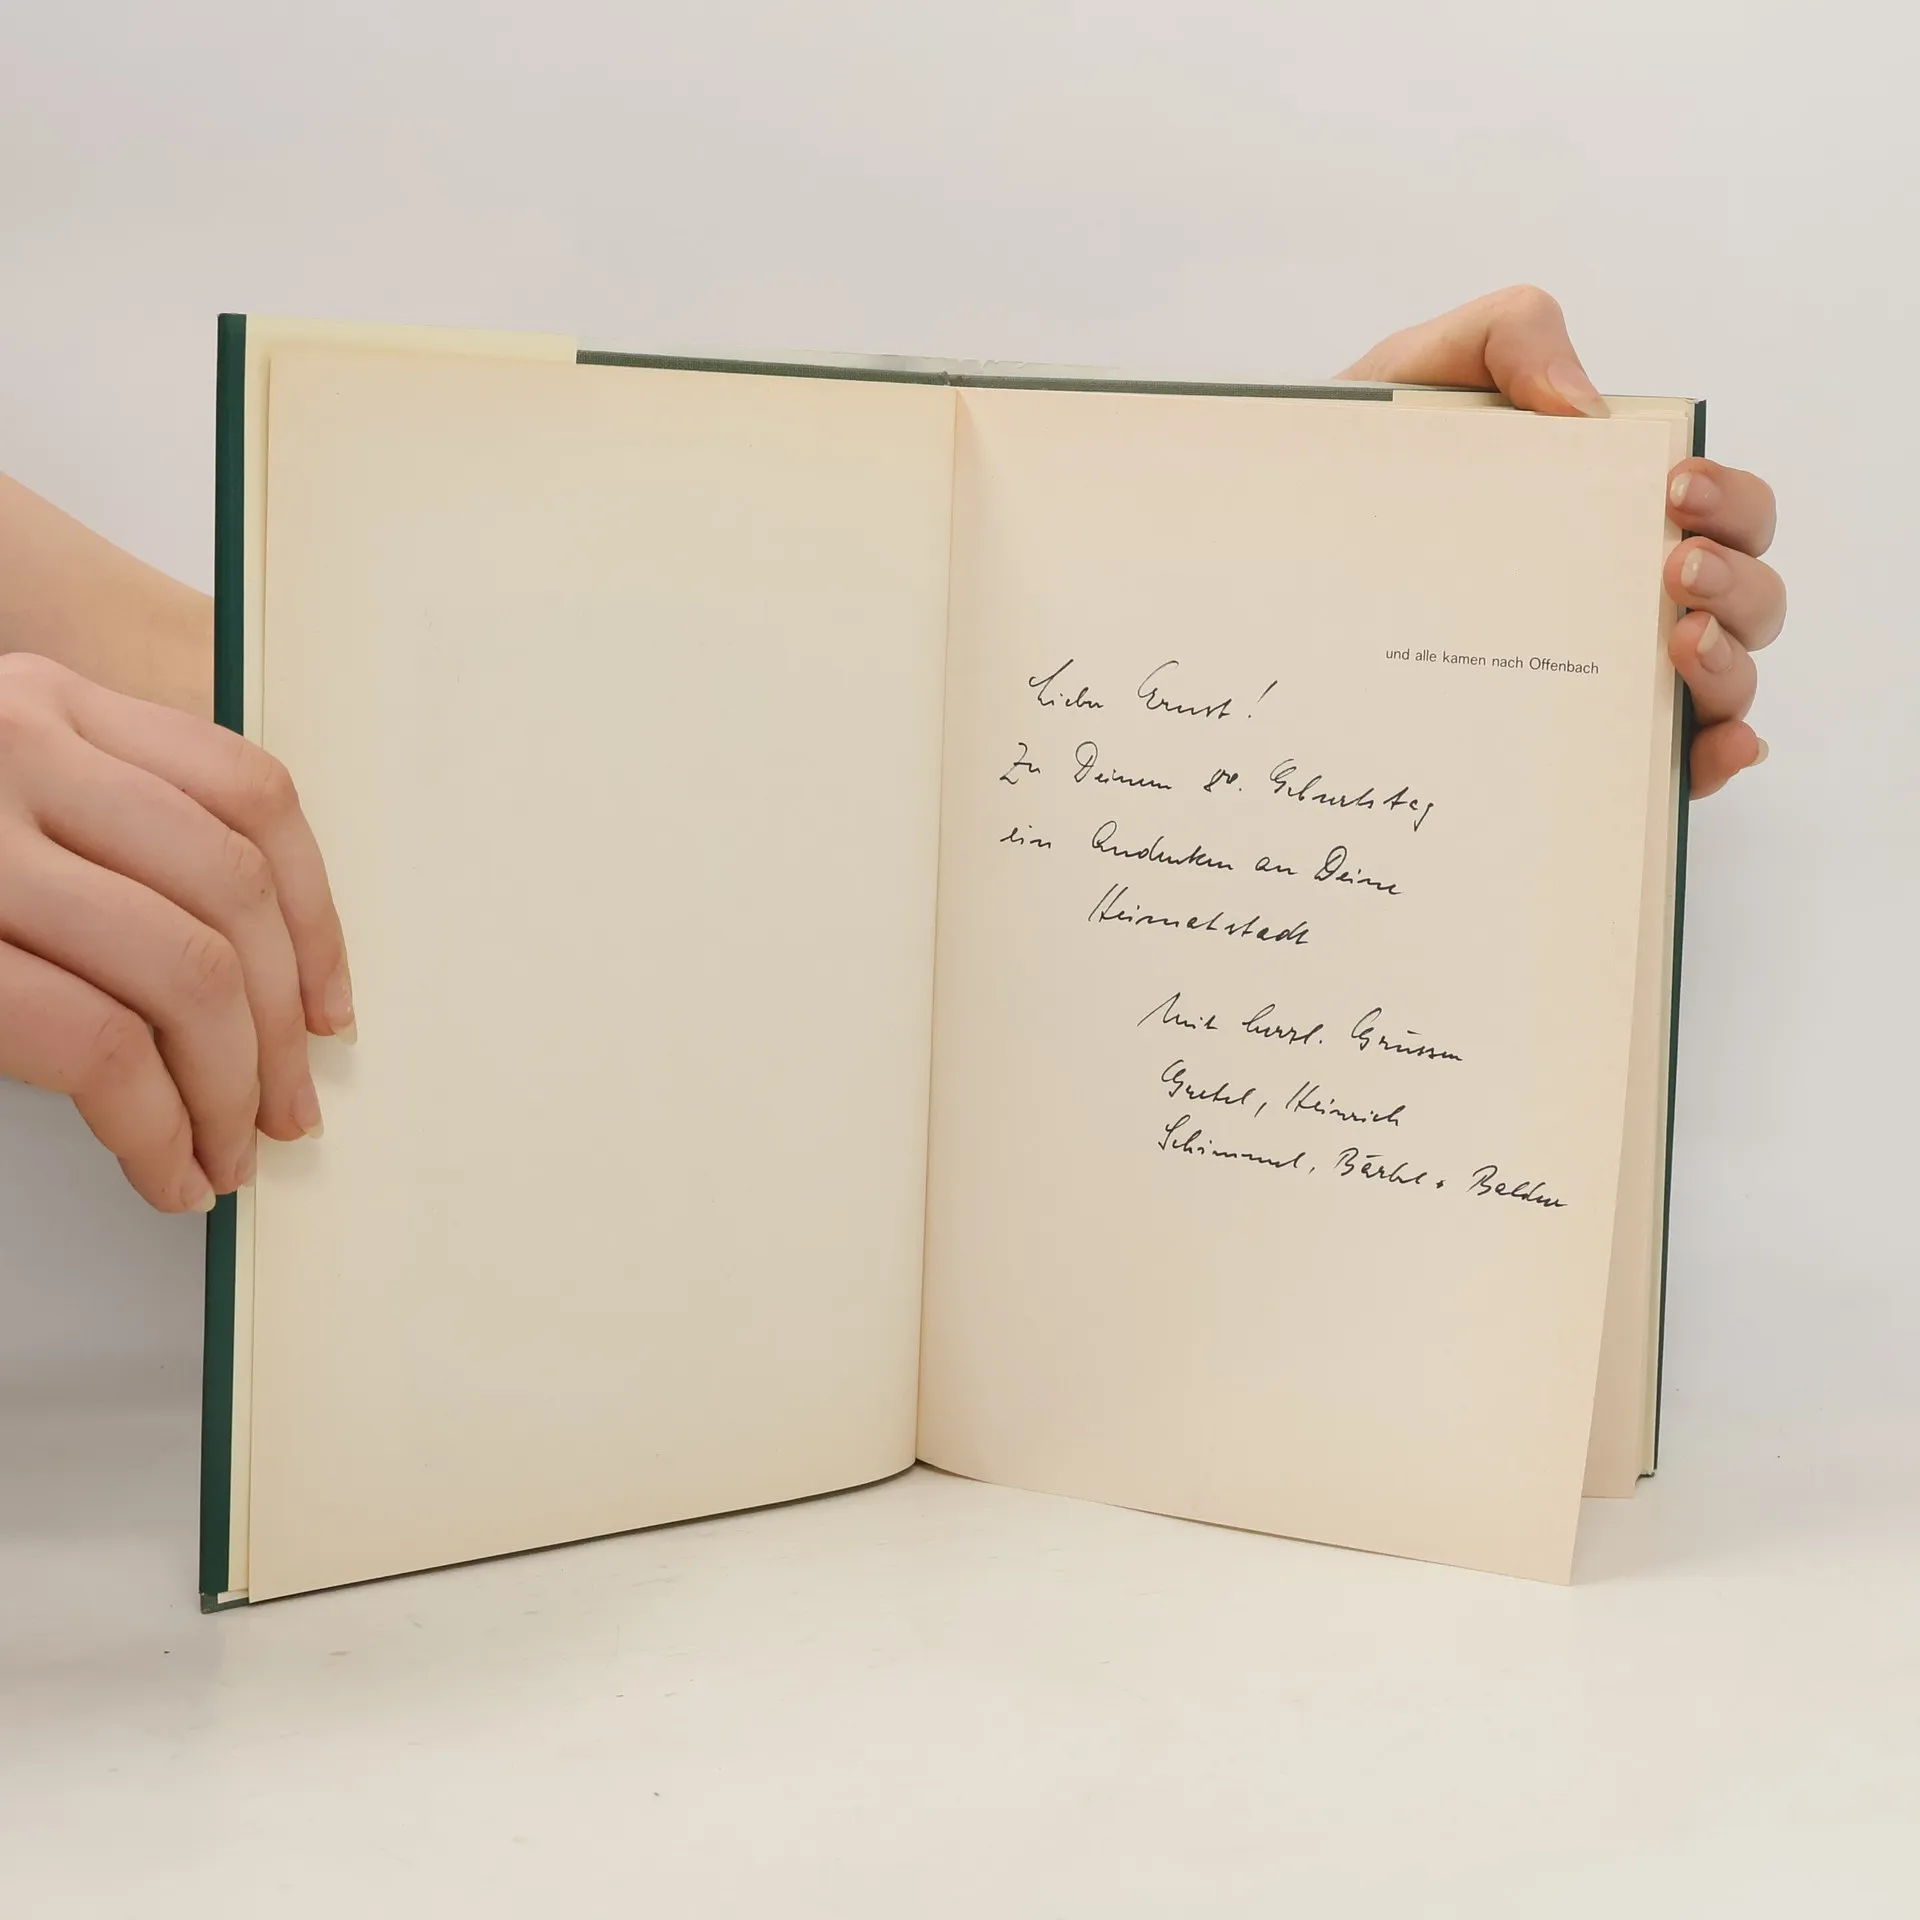 und alle kamen nach Offenbach
Lieber Ernst!
Zu Deinem 80. Geburtstag
ein Andenken an Deine
Heimatstadt
Mit herzl. Grüssen
Gretel, Heinrich
Schimmel, Bärbel + Baldur